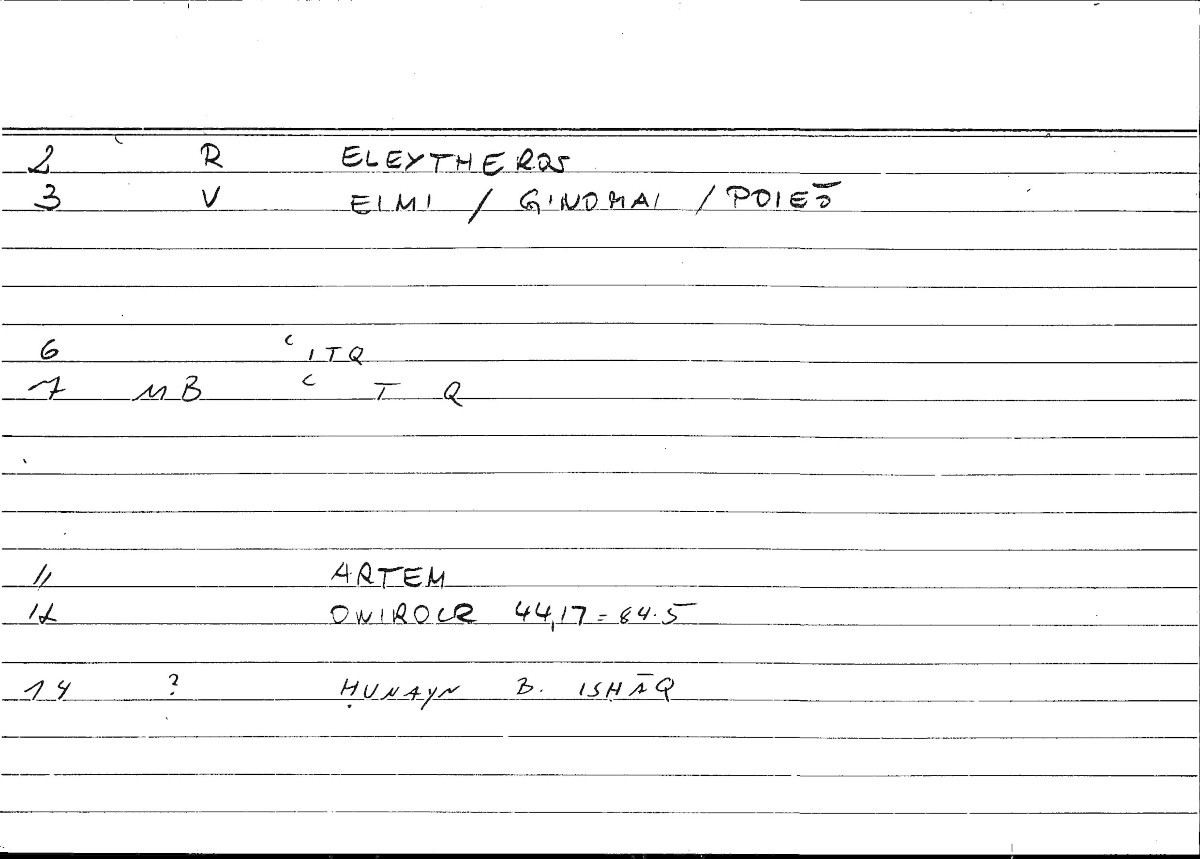 2 R ELEYTHEROS
3 V EIMI / GINOMAI / POIEŌ
6 ʿITQ
7 MB ʿ T Q
11 ARTEM
12 ONIROCR 44,17=84.5
14 ? ḤUNAYN B. ISḤĀQ